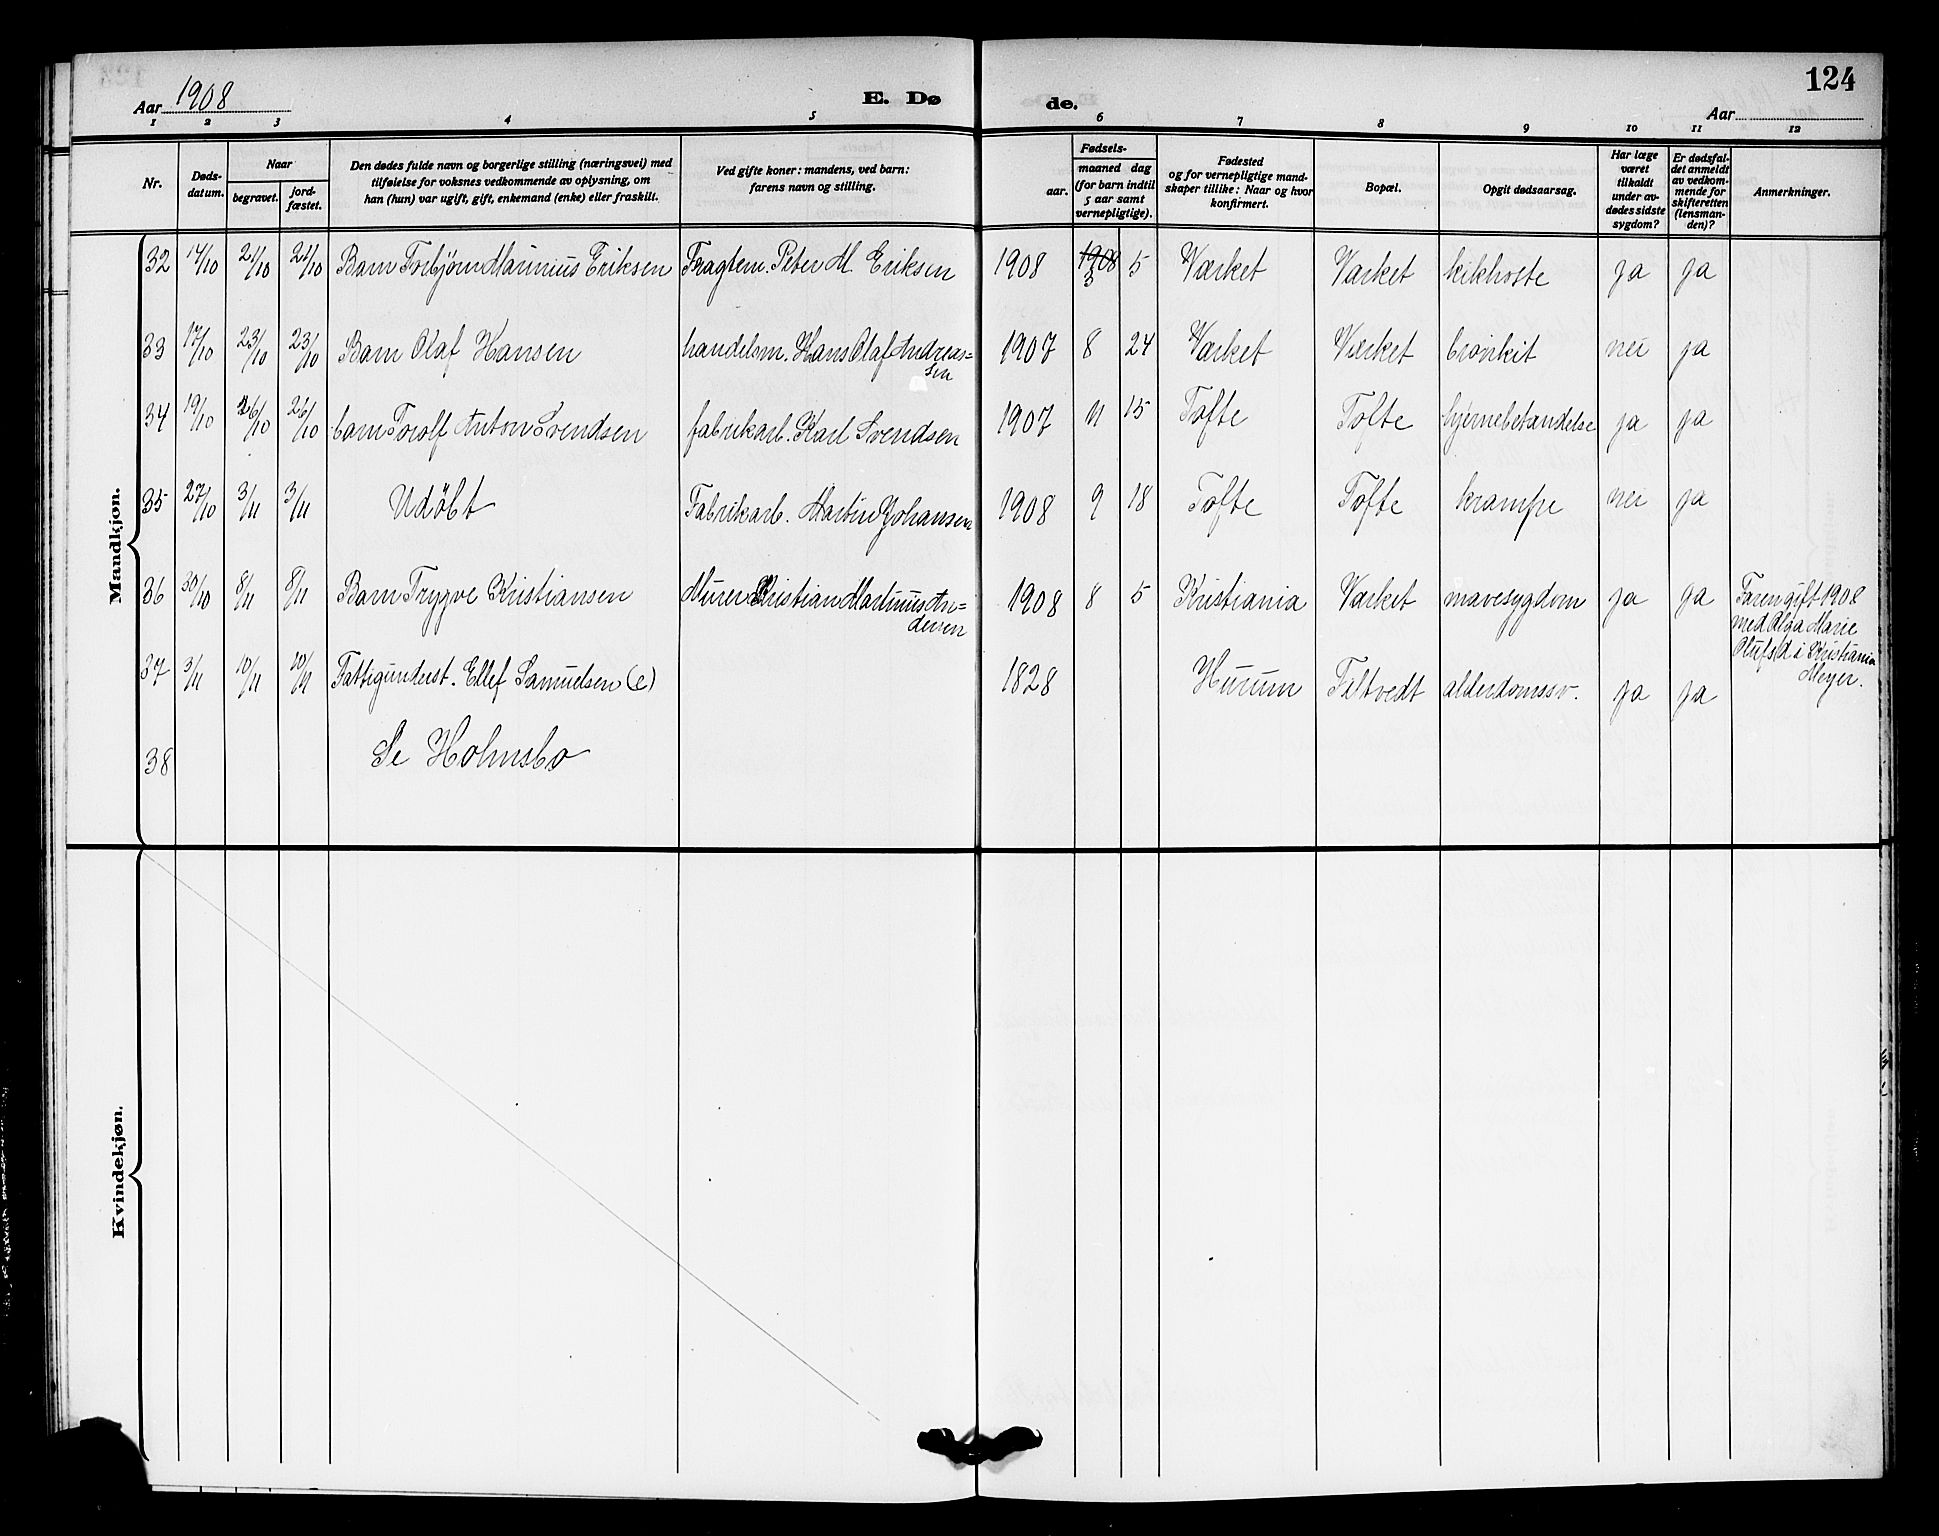 124
Aar 1908
E. Dø
de.
Aar
1 2 3 4 5 6 7 8 9 10 11 12
Nr.
Døds-
datum.
Naar
begravet.
jord-
fæstet.
Den dødes fulde navn og borgerlige stilling (næringsvei) med
tilføielse for voksnes vedkommende av oplysning, om
han (hun) var ugift, gift, enkemand (enke) eller fraskilt.
Ved gifte koner: mandens, ved barn:
farens navn og stilling.
Fødsels-
aar.
maaned dag
(for barn indtil
5 aar samt
vernepligtige).
Fødested
og for vernepligtige mand-
skaper tillike: Naar og hvor
konfirmert.
Bopæl.
Opgit dødsaarsag.
Har læge
været
tilkaldt
under av-
dødes sidste
sygdom?
Er dødsfal-
det anmeldt
av vedkom-
mende for
skifteretten
(lensman-
den)?
Anmerkninger.
Mandkjøn.
32 17/10 21/10 21/10 Barn Torbjørn Marinius Eriksen Fragtem. Peter M. Eriksen 1908 1908 5 Værket Værket kikhoste ja ja
3
33 17/10 23/10 23/10 Barn Olaf Hansen handelsm. Hans Olaf Andreas= 1907 8 24 Værket Værket bronkit nei ja
sen
34 19/10 26/10 26/10 barn Torolf Anton Svendsen fabrikarb. Karl Svendsen 1907 11 15 Tofte Tofte hjernebetændelse ja ja
35 27/10 3/11 3/11 Udöbt Fabrikarb. Martin Johansen 1908 9 18 Tofte Tofte krampe nei ja
36 30/10 8/11 8/11 Barn Trygve Kristiansen Murer Kristian Martinius An= 1908 8 5 Kristiania Værket mavesygdom ja ja Faren gift 1908
dersen
med Olga Marie
Olufsd i Kristiania
Meyer.
37 3/11 10/11 10/11 Fattigunderst. Ellef Samuelsen (e) 1828 Hurum Filtvedt alderdomssv. ja ja
38 Se Holmsbo
Kvindekjøn.